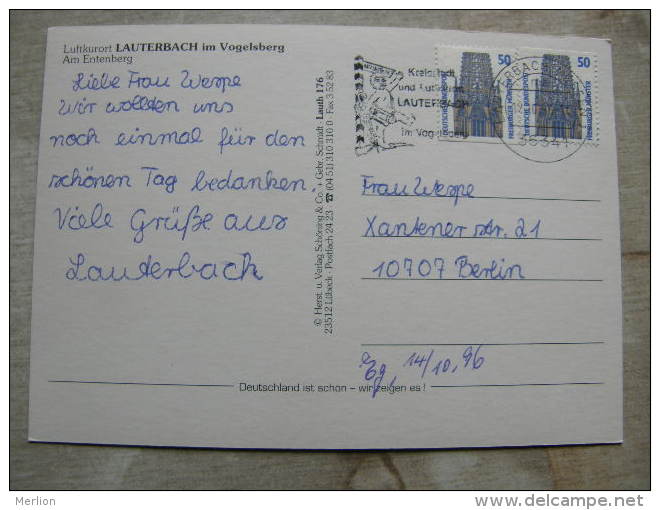 Luftkurort LAUTERBACH im Vogelsberg
Am Entenberg
Liebe Frau Wespe
Wir wollten uns
noch einmal für den
schönen Tag bedanken.
Viele Grüße aus
Lauterbach
© Herst. u. Verlag Schöning & Co. + Gebr. Schmidt · Lauth 176
23512 Lübeck · Postfach 24 23 · ☎ (04 51) 310 310 0 · Fax 3 52 83
Kreisstadt
und Luftkurort
LAUTERBACH
im Vogelsberg
50
DEUTSCHE BUNDESPOST
FREIBURGER MÜNSTER
50
DEUTSCHE BUNDESPOST
FREIBURGER MÜNSTER
36341
Frau Wespe
Xantener str. 21
10707 Berlin
Eg, 14/10.96
Deutschland ist schön – wir zeigen es!
Merlion
www.delcampe.net